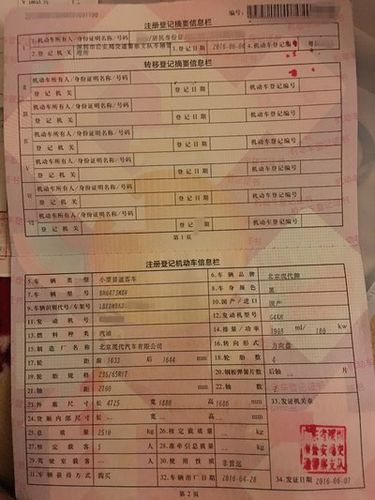 编号:
注册登记摘要信息栏
1.机动车所有人/身份证明名称/号码 /居民身份证
2.登记机关 深圳市公安局交通警察支队车辆管理所 3.登记日期 2016-06-06 4.机动车登记编号
转移登记摘要信息栏
II 机动车所有人/身份证明名称/号码
登记机关 登记日期 机动车登记编号
III 机动车所有人/身份证明名称/号码
登记机关 登记日期 机动车登记编号
机动车所有人/身份证明名称/号码
登记机关 登记日期 机动车登记编号
V 机动车所有人/身份证明名称/号码
登记机关 登记日期 机动车登记编号
机动车所有人/身份证明名称/号码
登记机关 登记日期 机动车登记编号
VII 机动车所有人/身份证明名称/号码
登记机关 登记日期 机动车登记编号
第1页
注册登记机动车信息栏
5.车辆类型 小型普通客车 6.车辆品牌 北京现代牌
7.车辆型号 8.车身颜色 黑
9.车辆识别代号/车架号 10.国产/进口 国产
11.发动机号 12.发动机型号 G4NH
13.燃料种类 汽油 14.排量/功率 ml/ kw
15.制造厂名称 北京现代汽车有限公司 16.转向形式 方向盘
17.轮距 前 1633 后 1644 mm 18.轮胎数 4
19.轮胎规格 235/65R17 20.钢板弹簧片数 后轴 片
21.轴距 2700 mm 22.轴数 2
23.外廓尺寸 长 4725 宽 1880 高 1686 mm 33.发证机关章
24.货厢内部尺寸 长 宽 高 mm
25.总质量 2510 kg 26.核定载质量 kg
27.核定载客 5 人 28.准牵引总质量 kg
29.驾驶室载客 人 30.使用性质 非营运
31.车辆获得方式 购买 32.车辆出厂日期 2016-04-28 34.发证日期 2016-06-07
第2页